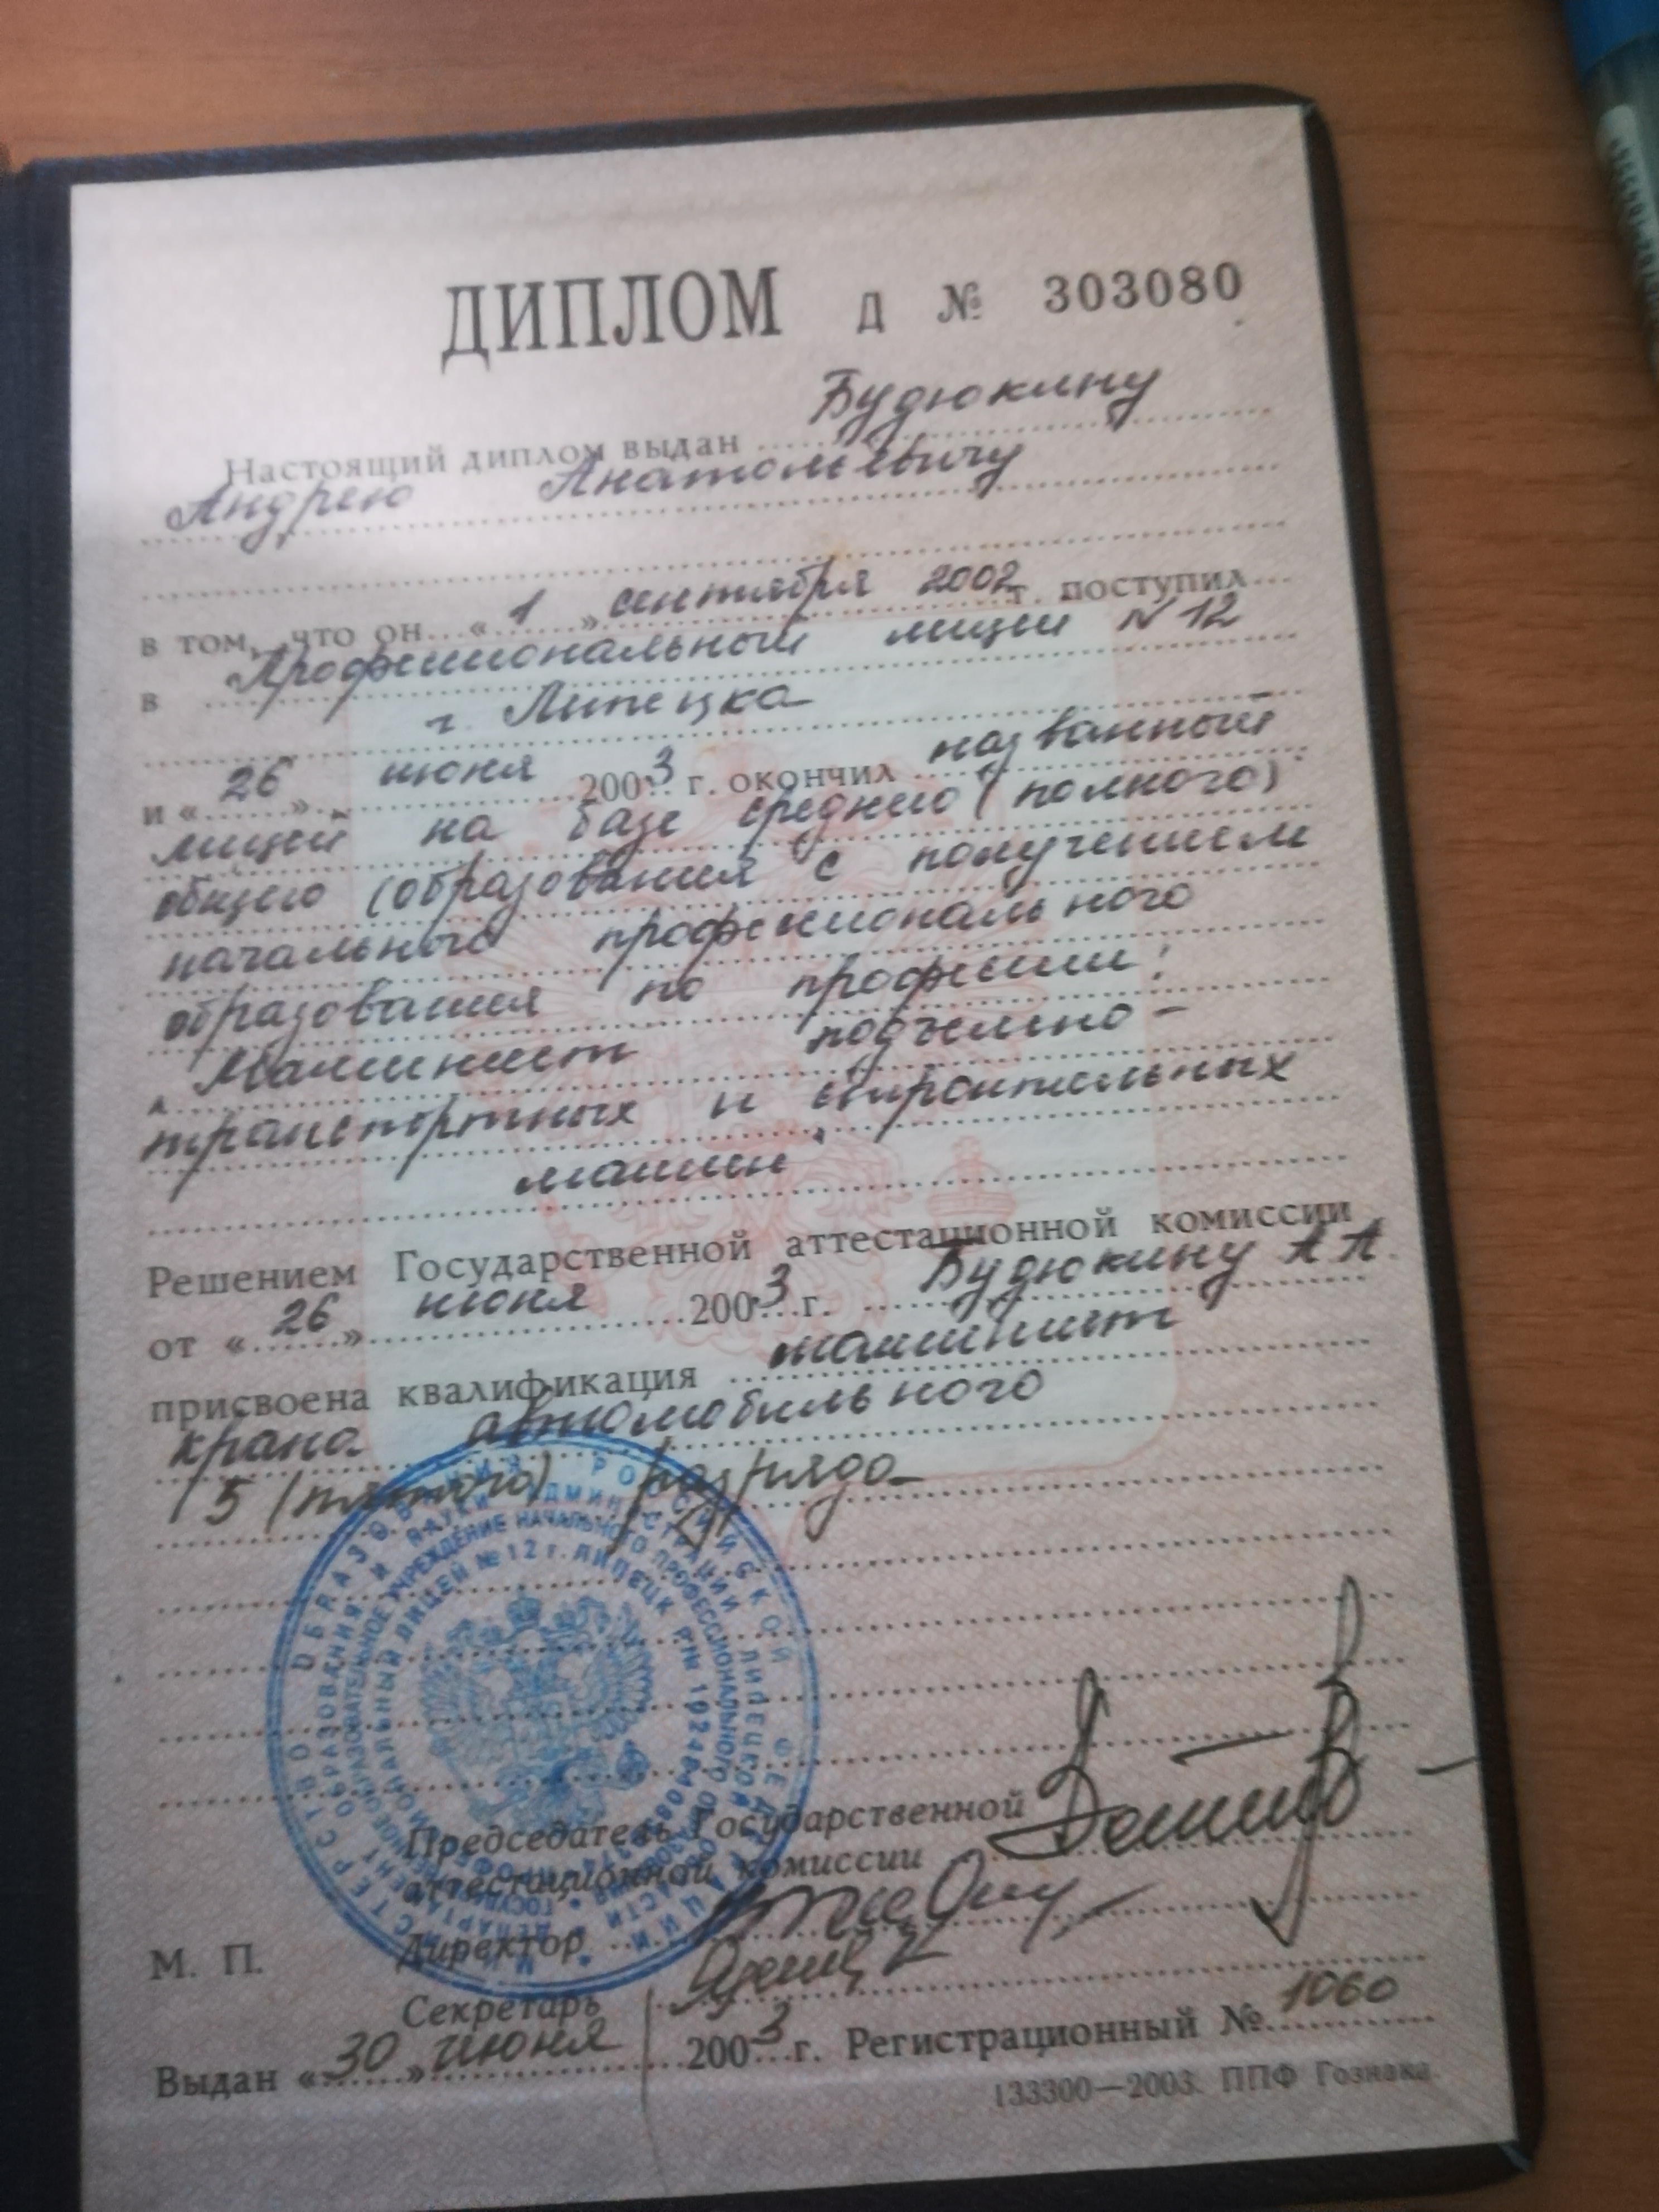 ДИПЛОМ Д № 303080
Настоящий диплом выдан Будюкину
Андрею Анатольевичу
в том, что он « 1 » сентября 2002 г. поступил
в "Профессиональный лицей N 12
г. Липецка
и « 26 » июня 2003 г. окончил названный
лицей на базе среднего (полного)
общего (образования с получением
начального профессионального
образования по профессии:
Машинист подъемно-
транспортных и строительных
машин
Решением Государственной аттестационной комиссии
от « 26 » июня 2003 г. Будюкину А А.
присвоена квалификация машинист
крана автомобильного
5 (пятого) разряда
МИНИСТЕРСТВО ОБРАЗОВАНИЯ РОССИЙСКОЙ ФЕДЕРАЦИИ
ОБРАЗОВАНИЯ И НАУКИ АДМИНИСТРАЦИИ ЛИПЕЦКОЙ
ОБРАЗОВАТЕЛЬНОЕ УЧРЕЖДЕНИЕ НАЧАЛЬНОГО ПРОФЕССИОНАЛЬНОГО
ЛИЦЕЙ № 12 г. ЛИПЕЦК
Председатель Государственной
аттестационной комиссии
Директор
М. П.
Секретарь
Выдан « 30 » июня 2003 г. Регистрационный № 1060
133300—2003. ППФ Гознака.